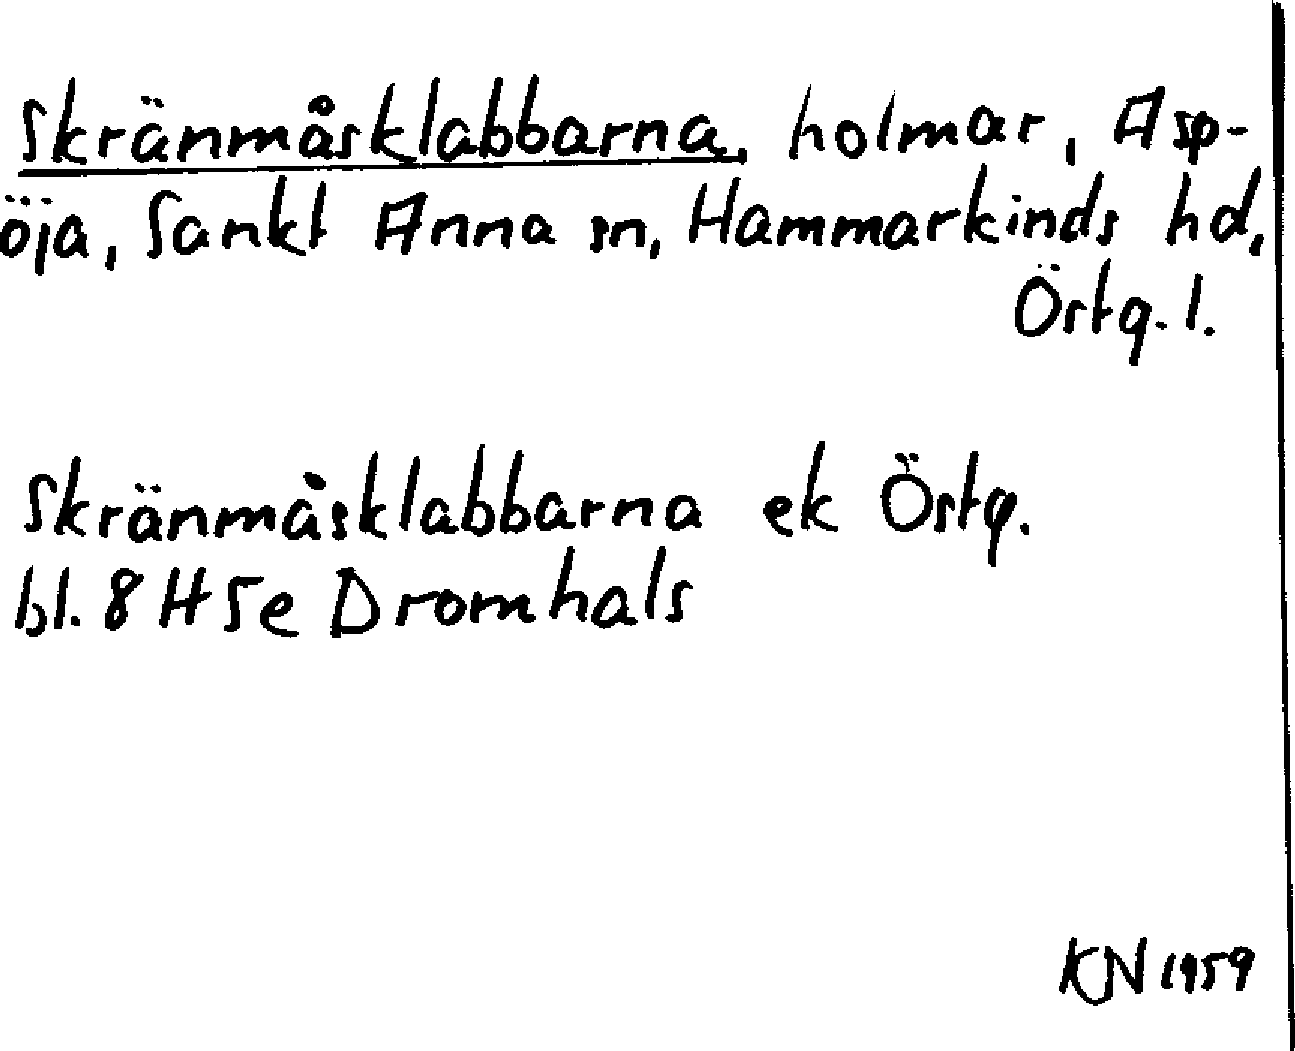 Skränmåsklabbarna, holmar, Asp-
öja, Sankt Anna sn, Hammarkinds hd,
Östg. l.
Skränmåsklabbarna ek Östg.
bl. 8 H 5e Dromhals
KJN 1959